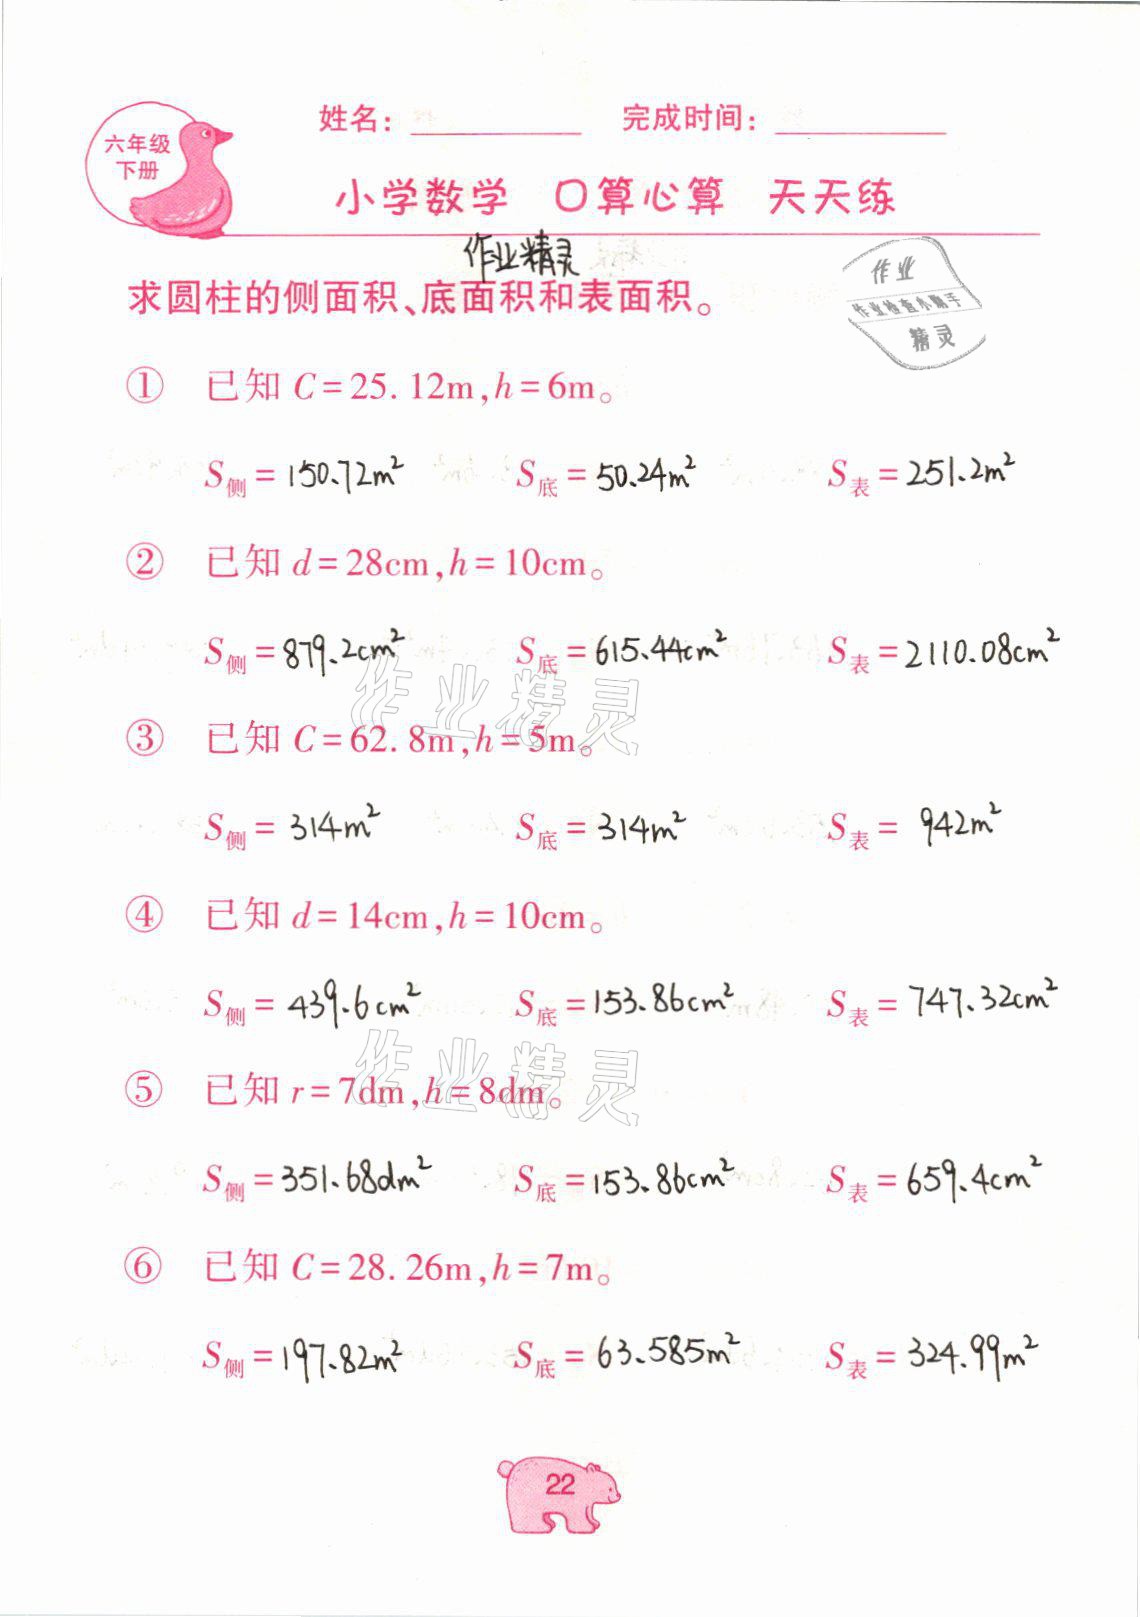 六年级
下册
姓名： 完成时间：
小学数学 口算心算 天天练
作业精灵
求圆柱的侧面积、底面积和表面积。
作业
作业检查小帮手
精灵
① 已知 C=25.12m,h=6m。
S侧=150.72m² S底=50.24m² S表=251.2m²
② 已知 d=28cm,h=10cm。
S侧=879.2cm² S底=615.44cm² S表=2110.08cm²
作业精灵
③ 已知 C=62.8m,h=5m。
S侧=314m² S底=314m² S表=942m²
④ 已知 d=14cm,h=10cm。
S侧=439.6cm² S底=153.86cm² S表=747.32cm²
作业精灵
⑤ 已知 r=7dm,h=8dm。
S侧=351.68dm² S底=153.86cm² S表=659.4cm²
⑥ 已知 C=28.26m,h=7m。
S侧=197.82m² S底=63.585m² S表=324.99m²
22